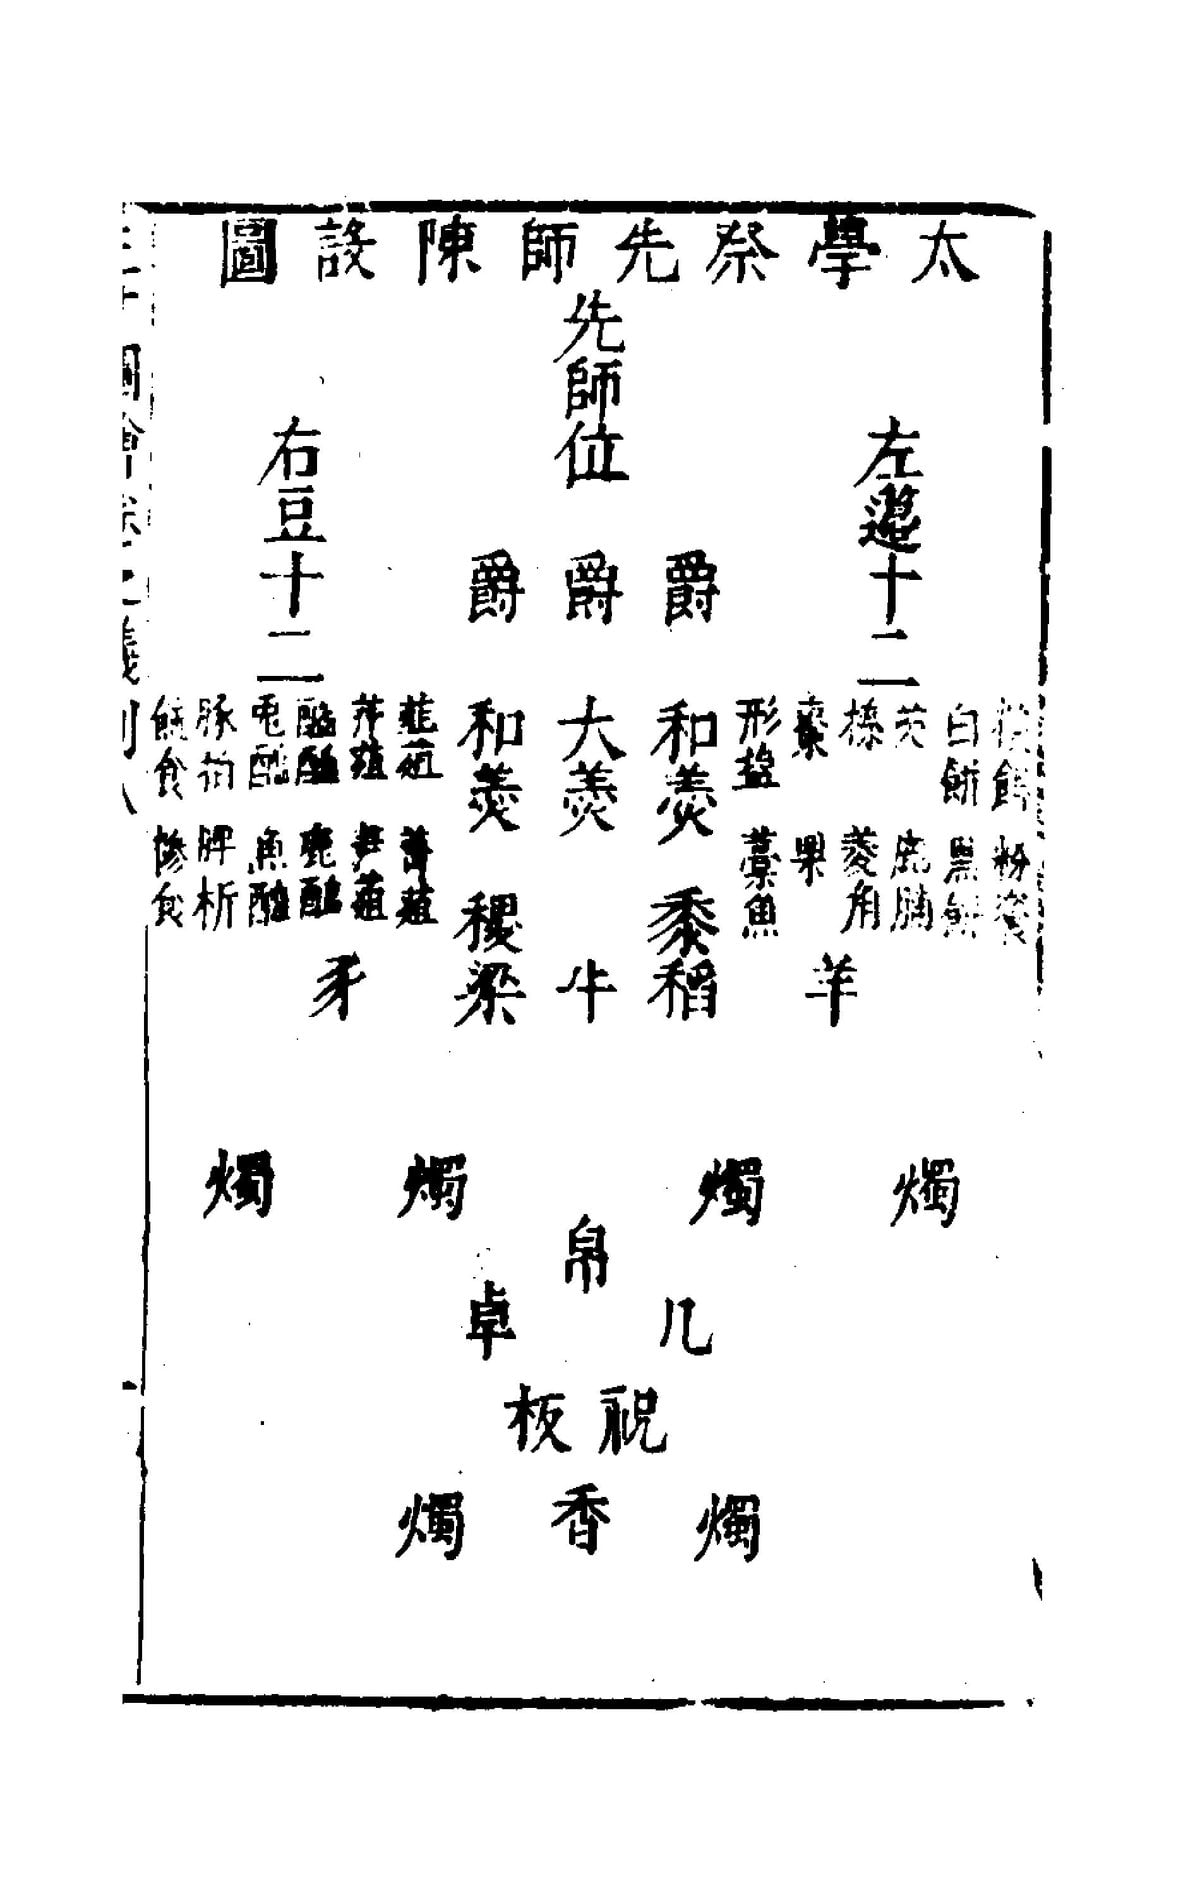 太學祭先師陳設圖
先師位
左籩十二
右豆十二
爵 爵 爵
和羹
大羹
和羹
形鹽
藁魚
棗
果
榛
菱角
芡
鹿脯
白餅
黑餅
粉餈
韭菹
菁菹
芹菹
笋菹
醓醢
鹿醢
魚醢
豚拍
脾析
食
糝食
黍稻
稷粱
羊
牛
豕
燭 燭 燭 燭
帛
几 卓
祝板
燭 香 燭
圖會卷 儀制八